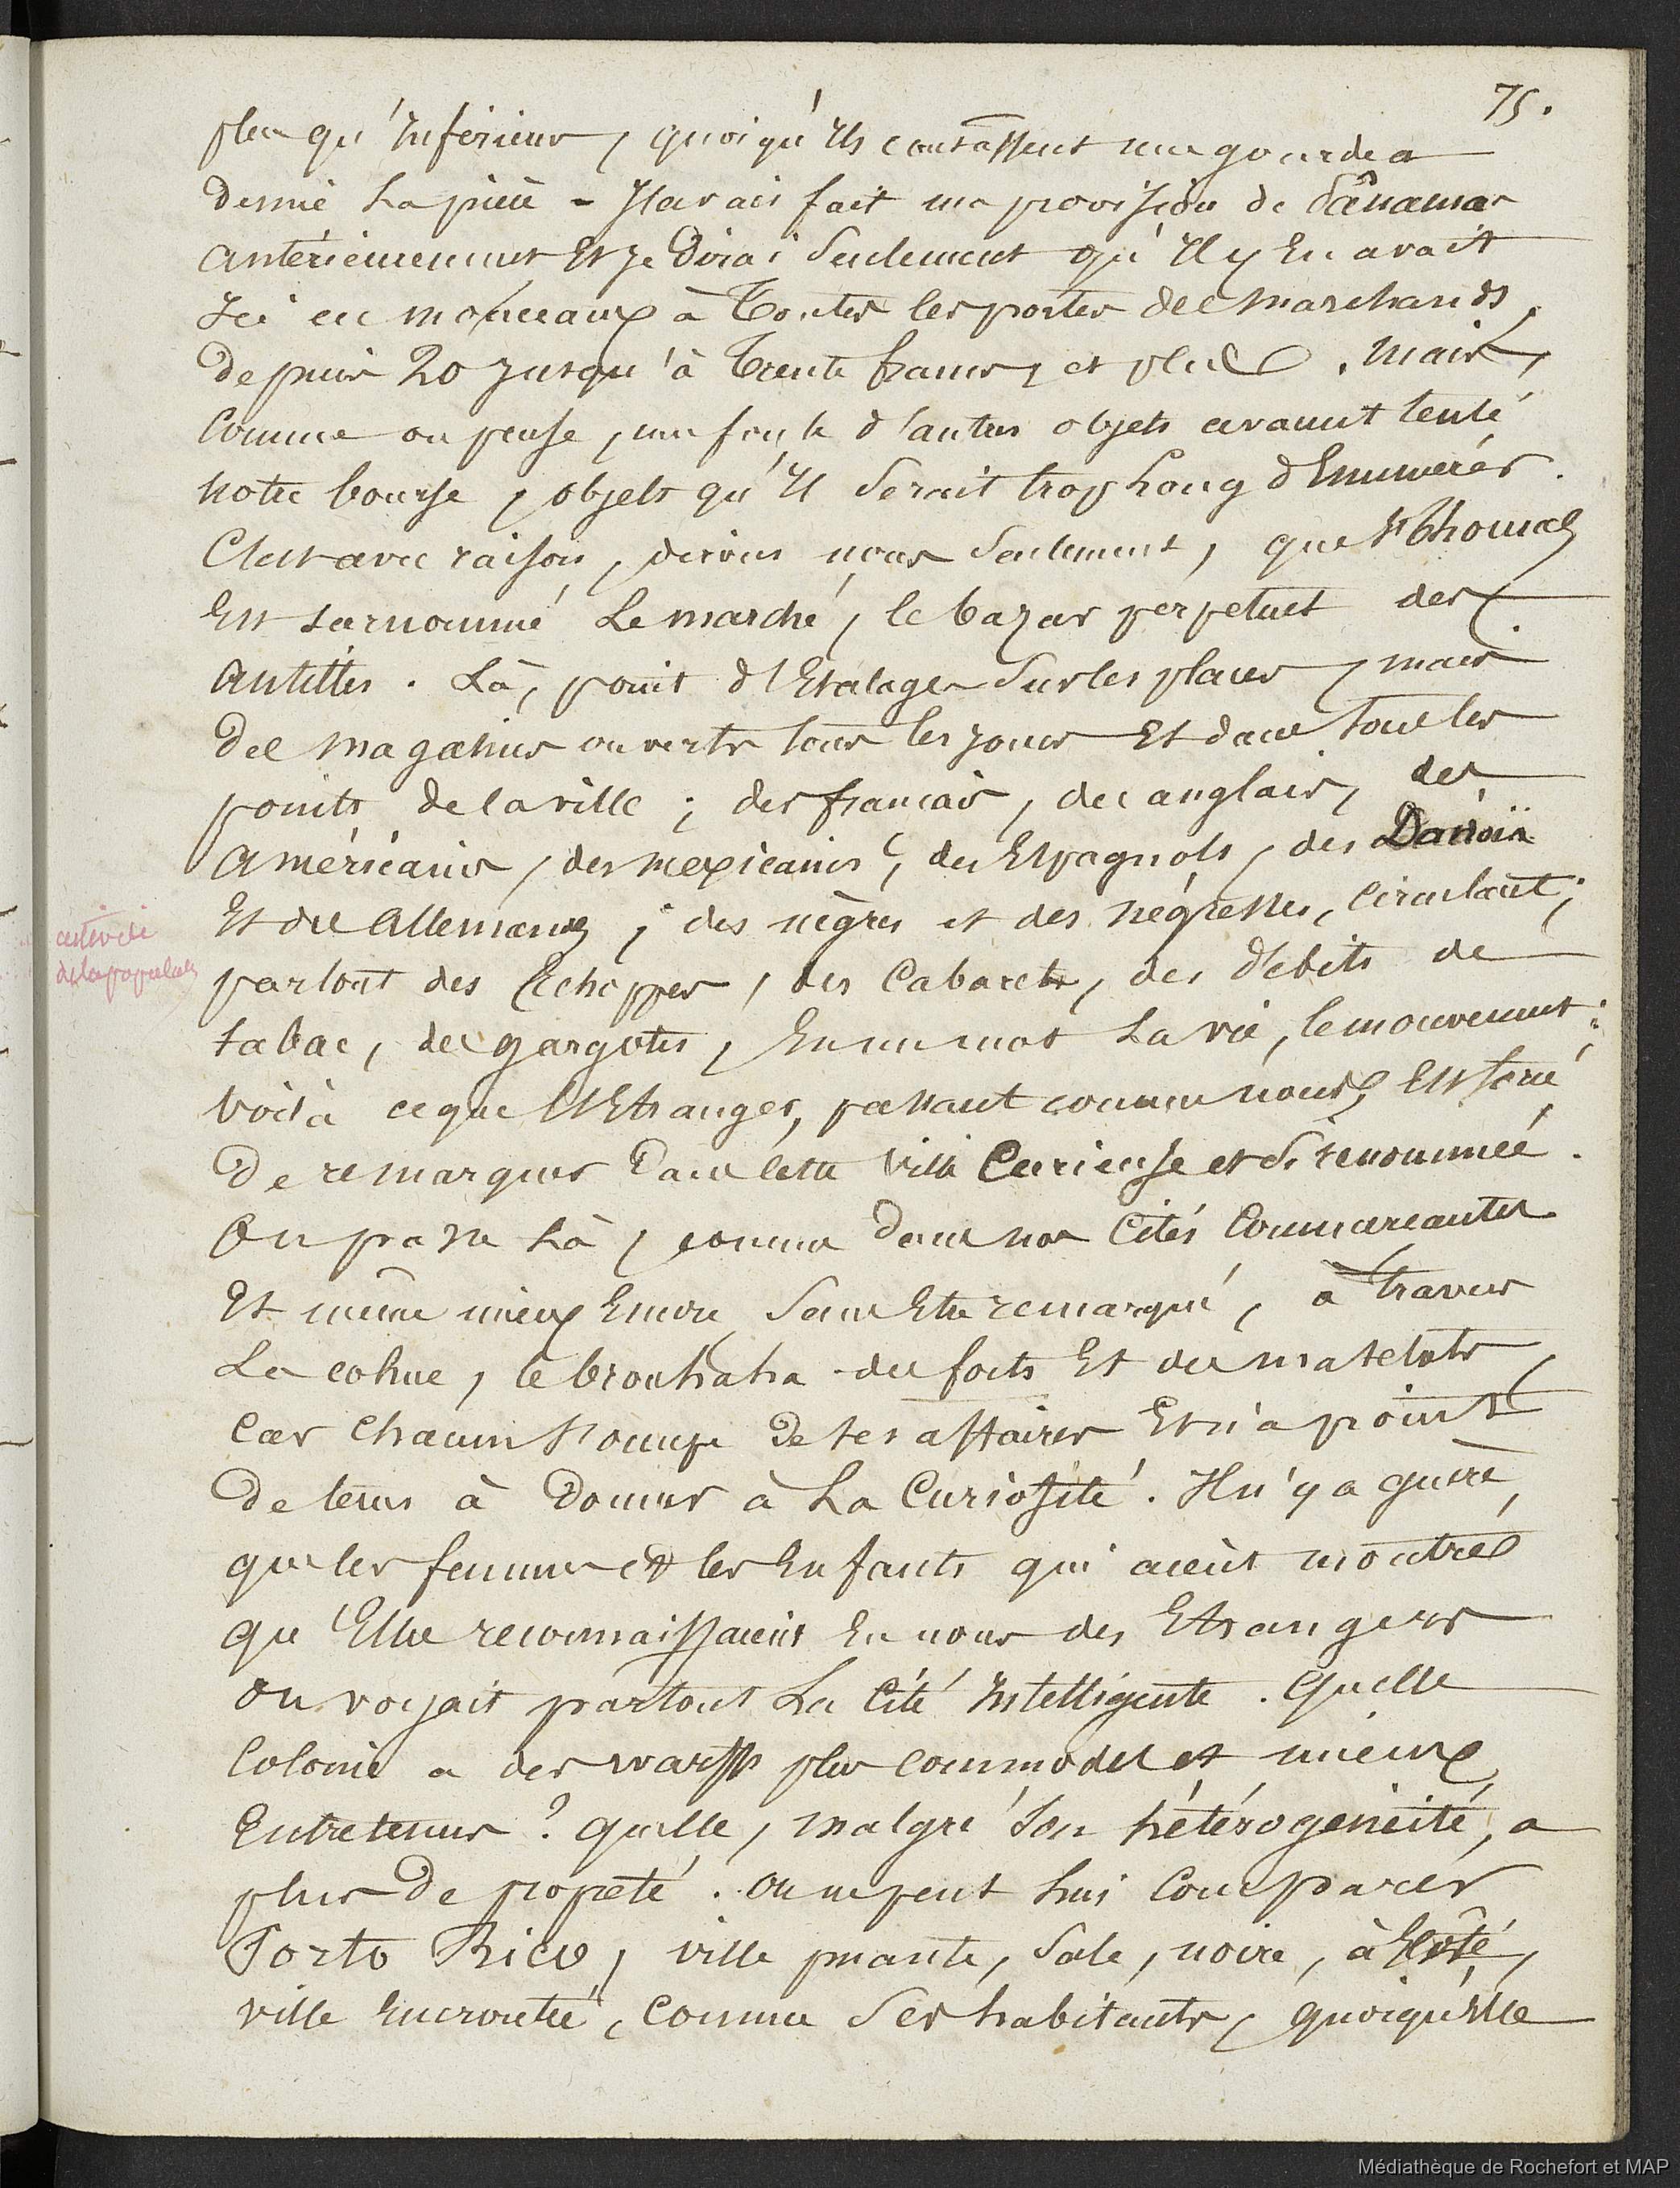 75.
plus qu'Inférieur, quoiqu'Ils coutassent une gourde a
demie La pièce - J'avais fait ma provision de Panamas
antérieurement Et Je Dirai Seulement qu'Il y En avait
Ici en monceaux à Toutes les portes des marchands,
Depuis 20 jusqu'à Trente francs, et plus. Mais,
Comme on pense, une foule d'autres objets avaient tenté
notre bourse, objets qu'Il Serait trop Long d'Enumérer.
C'est avec raison, disons nous Seulement, que St Thomas
Est surnommé Le marché, le bazar perpetuel des
Antilles. Là, point d'Etalages Sur les places, mais
Des magasins ouverts tous les jours Et dans tous les
points de la ville ; des francais, des anglais, des
Américains, des mexicains, des Espagnols, des Danois
Et des Allemands ; des nègres et des négresses, Circulant ;
activité
de la population
partout des Echoppes, des Cabarets, des débits de
tabac, des gargotes, En un mot La vie, le mouvement ;
Voilà ce que l'Etranger, passant comme nous, Est forcé
De remarquer Dans cette Ville Curieuse et Si renommée.
On passe Là, comme dans nos Cités Commercantes
Et même mieux Encore Sans Etre remarqué, à travers
La cohue, le brouhaha des forts Et des matelots,
Car Chacun s'occupe De ses affaires Et n'a point
De tems à Donner à La Curiosité. Il n'y a guère,
que les femmes et les Enfants qui aient montré
qu'Elles reconnaissaient En nous des Etrangers
On voyait partout La Cité Intelligente. Quelle
Colonie a des warffs plus commodes et mieux
Entretenus ? Quelle, malgré Son hétérogénéité, a
plus De propreté. On ne peut lui Comparer
Porto Rico, ville puante, Sale, noire, à côté,
ville Encroutée, Comme Ses habitants, quoiqu'Elle
Médiathèque de Rochefort et MAP